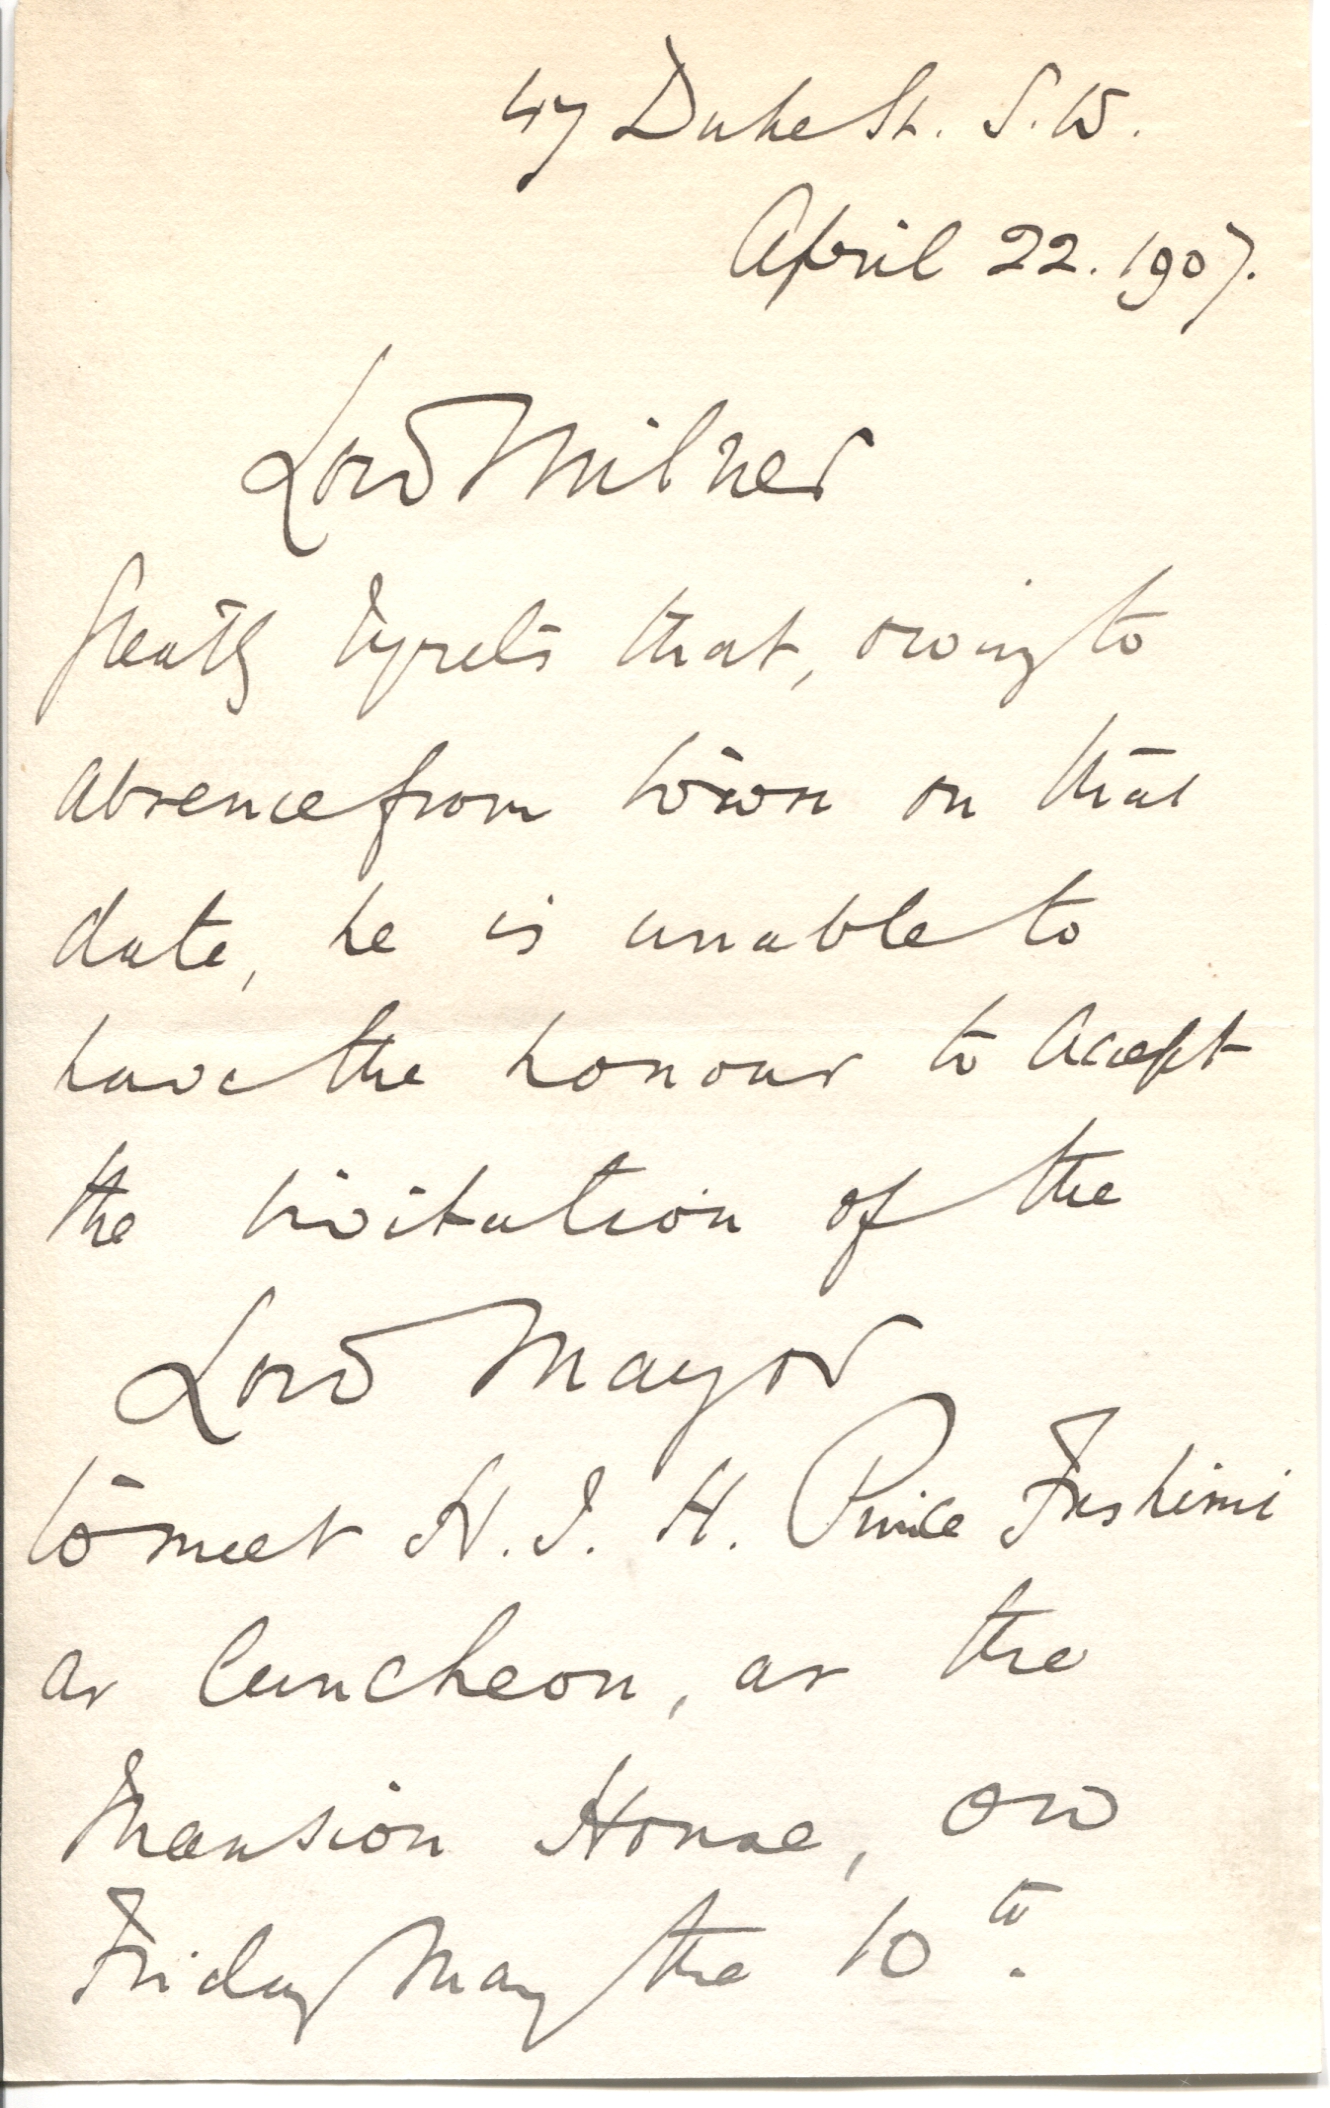 47 Duke St. S.W.
April 22. 1907.
Lord Milner
greatly regrets that, owing to
absence from town on that
date, he is unable to
have the honour to accept
the invitation of the
Lord Mayor
to meet H. I. H. Prince Fushimi
at luncheon, at the
Mansion House, on
Friday May the 10th.